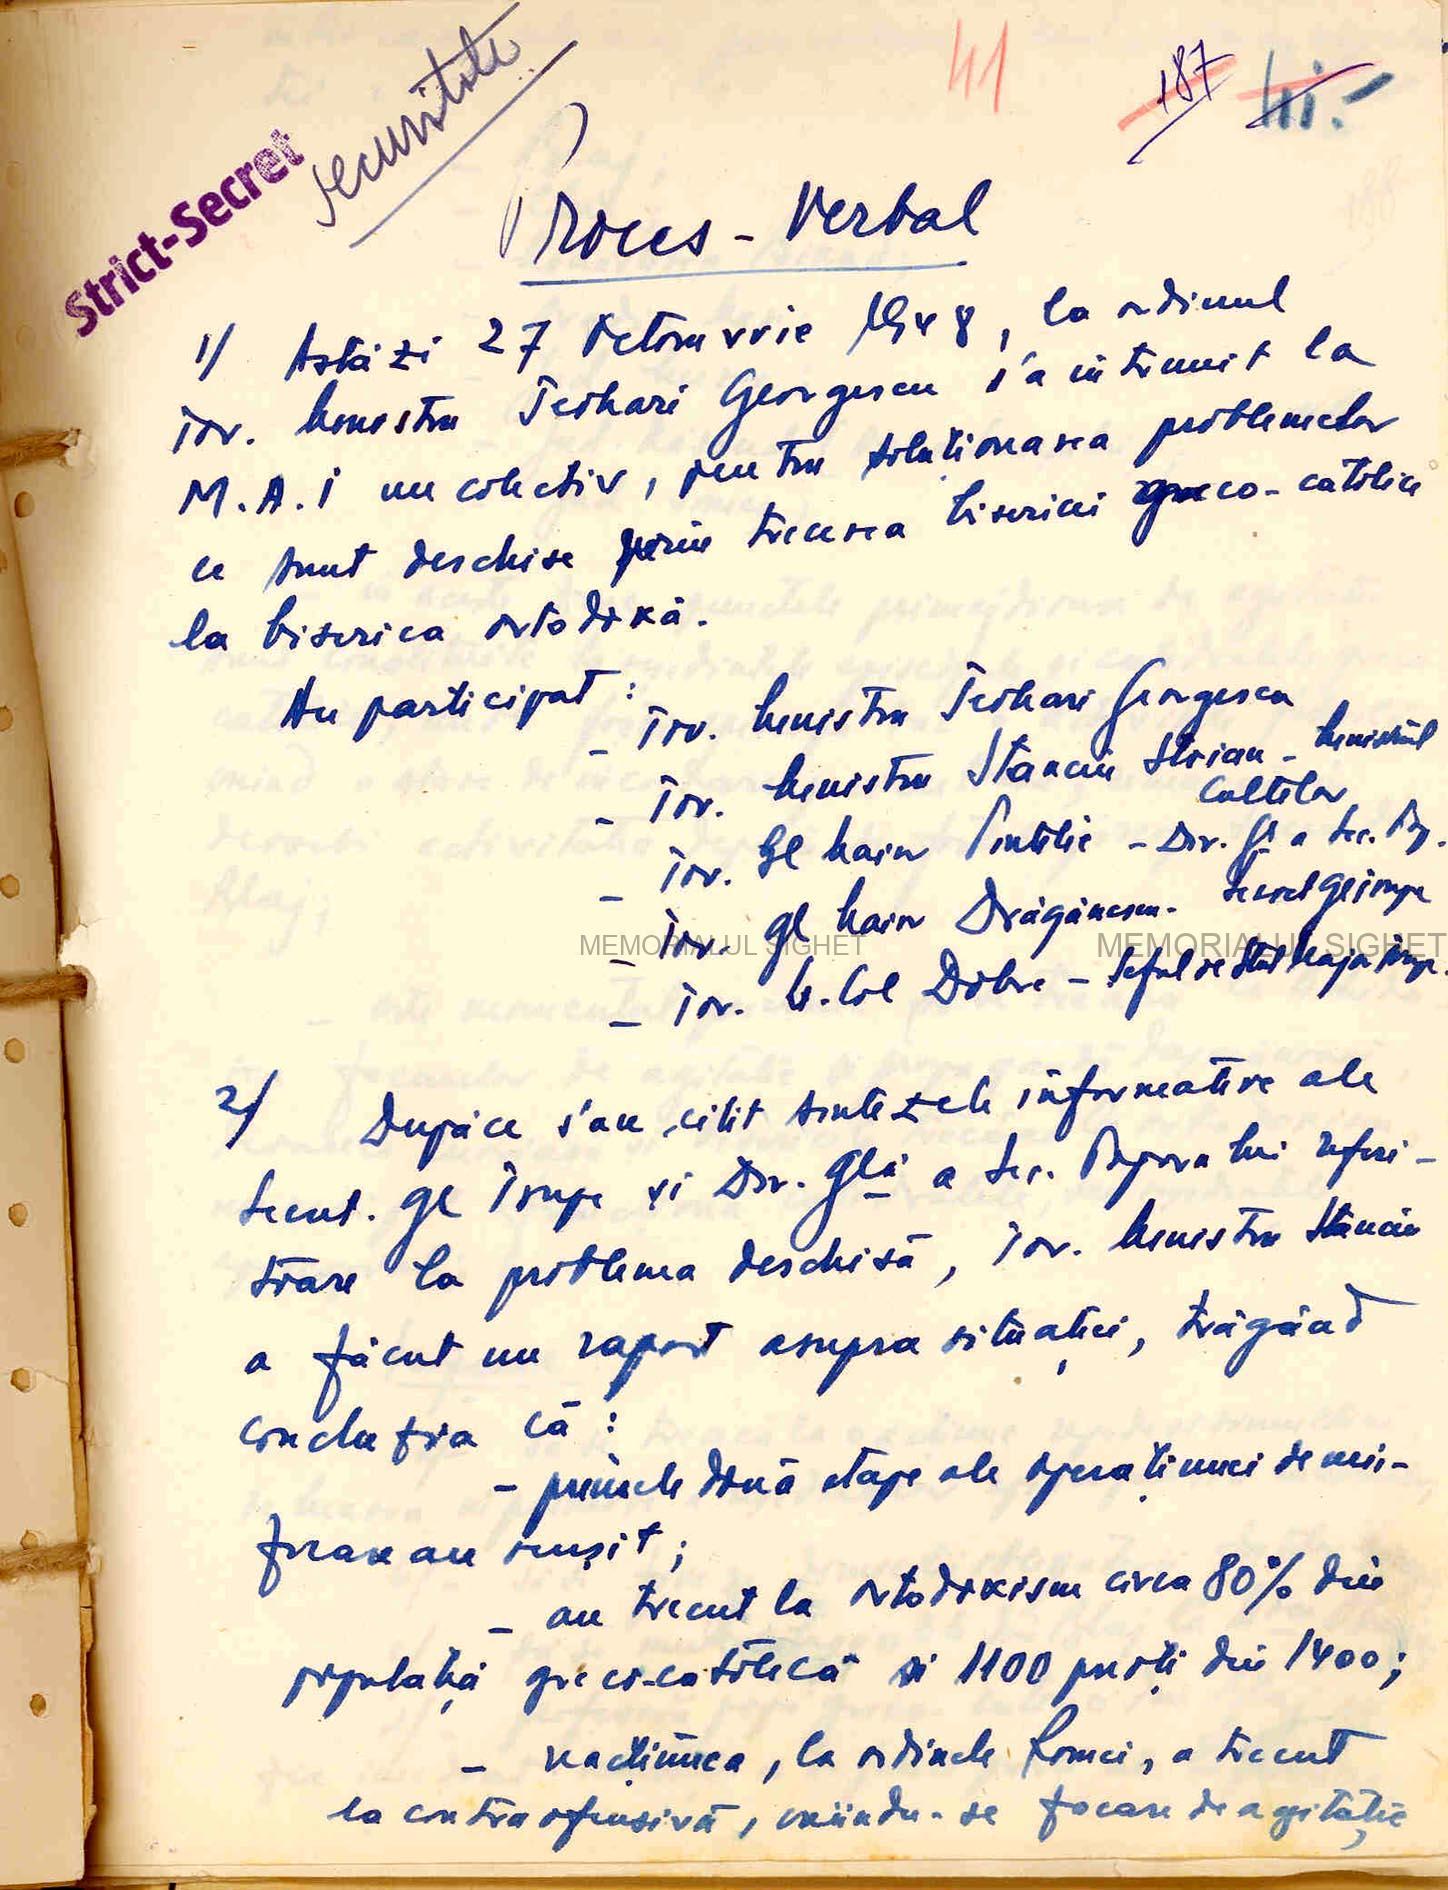 41
187
Strict-Secret
Securitate
Proces-Verbal
1/ Astăzi 27 Octomvrie 1948, la ordinul
Tov. Ministru Teohari Georgescu s'a întrunit la
M.A.I un colectiv, pentru soluționarea problemelor
ce sunt deschise prin trecerea bisericii greco-catolice
la biserica ortodoxă.
Au participat:
- Tov. Ministru Teohari Georgescu
- Tov. Ministru Stanciu Stoian - Ministrul
Cultelor
- Tov. Gl Maior Pintilie - Dir. Gl a Sec. Pop.
- Tov. Gl Maior Drăgănescu - Gl Insp
- Tov. Lt. Col Dobre - Șeful de Stat Major Insp.
2/ După ce s'au citit sintezele informative ale
Gl Insp. și Dir. Glă a Sec. Poporului referi-
toare la problema deschisă, Tov. Ministru Stanciu
a făcut un raport asupra situației, trăgând
concluzia că:
- primele două etape ale operațiunei de uni-
ficare au reușit;
- au trecut la ortodoxism circa 80% din
populația greco-catolică și 1100 preoți din 1400;
- reacțiunea, la ordinele Romei, a trecut
la contraofensivă, creindu-se focare de agitație
MEMORIALUL SIGHET
MEMORIALUL SIGHET